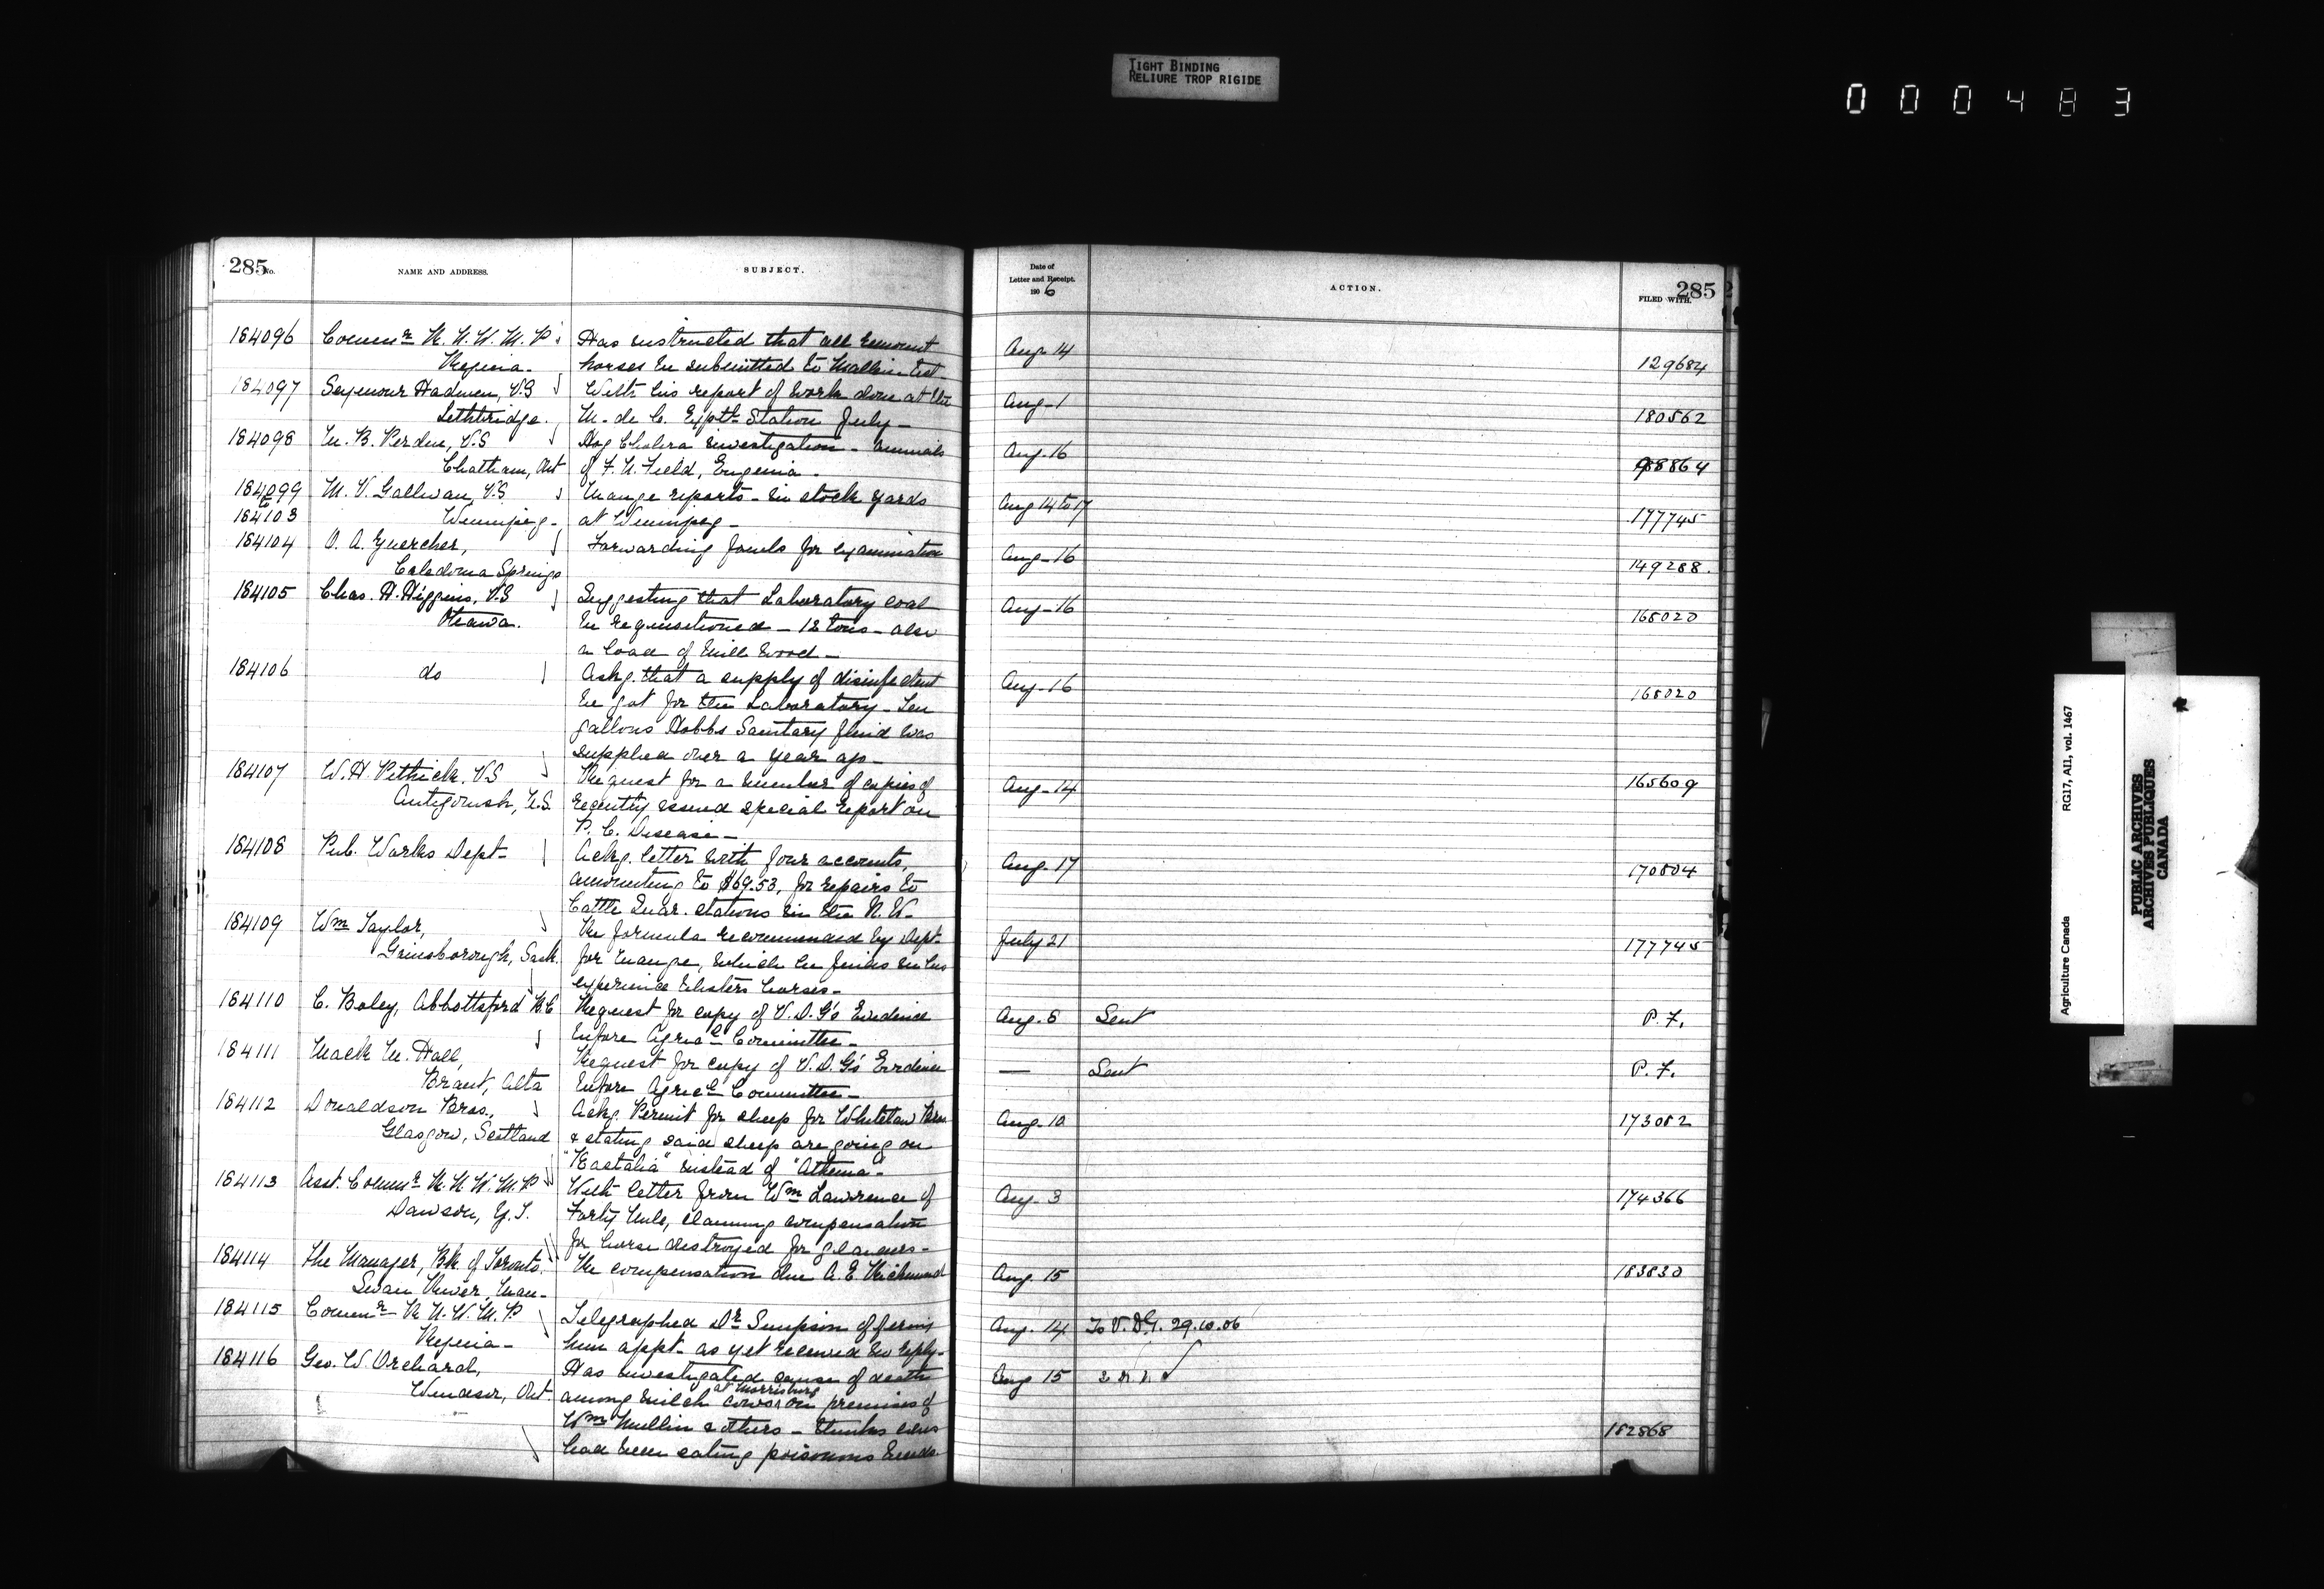 TIGHT BINDING
RELIURE TROP RIGIDE
000483
285 No.
NAME AND ADDRESS.
SUBJECT.
Date of
Letter and Receipt.
190 6
ACTION.
285
FILED WITH.
184096 Commr R. N. W. M. P. Has instructed that all remount Aug. 14
Regina. horses be submitted to Mallein test 129684
184097 Seymour Hadwen, V.S With his report of work done at the Aug. 1
Lethbridge. M. de C. Exptl. Station July 180562
184098 M. B. Perdue, V.S Hog Cholera investigation - animals Aug. 16
Chatham, Ont of F. N. Field, Eugenia. 98864
184099 M. V. Gallivan, V.S Mange reports - in stock yards Aug 14 to 17
to
184103 Winnipeg. at Winnipeg - 177745
184104 O. A. Guercher, Forwarding fowls for examination Aug. 16
Caledonia Springs 149288.
184105 Chas. H. Higgins, V.S Suggesting that Laboratory coal Aug. 16
Ottawa. be requisitioned - 12 tons - also 165020
a load of mill wood -
184106 do Askg. that a supply of disinfectant Aug. 16
be got for the Laboratory - Ten 165020
gallons Hobbs Sanitary fluid was
supplied over a year ago -
184107 W. H. Pethick. V.S Request for a number of copies of Aug. 14
Antigonish, N.S. recently issued special report on 165609
P. C. Disease -
184108 Pub. Works Dept - Ackg. letter with four accounts, Aug. 17
amounting to $69.53, for repairs to 170804
Cattle Quar. stations in the N. W.
184109 Wm Taylor, Re formula recommended by Dept. July 21
Gainsborough, Sask. for mange, which he finds in his 177745
experience blisters horses -
184110 C. Boley, Abbottsford B.C Request for copy of V. D. G's Evidence Aug. 8 Sent P. F.
before Agricl Committee -
184111 Mack M. Hall, Request for copy of V. D. G's Evidence — Sent P. F.
Brant, Alta before Agricl Committee -
184112 Donaldson Bros., Ackg. Permit for sheep for Whitelaw Bros. Aug. 10 173082
Glasgow, Scotland & stating said sheep are going on
"Kastalia" instead of "Athenia" -
184113 Asst. Commr R. N. W. M. P With letter from Wm Lawrence of Aug. 3 174366
Dawson, Y. T. Forty Mile, claiming compensation
for horse destroyed for glanders -
184114 The Manager, Bk. of Toronto. Re compensation due A. E. Richmond Aug. 15 183830
Swan River, Man -
184115 Commr R. N. W. M. P Telegraphed Dr Simpson offering Aug. 14 To V. D. G. 29.10.06
Regina - him appt. as yet received no reply -
184116 Geo. W. Orchard, Has investigated cause of death Aug 15
Windsor, Ont. among milch cows at Morrisburg on premises of
Wm Mullin & others - thinks cows 182868
had been eating poisonous weeds.
Agriculture Canada RG17, AII, vol. 1467
PUBLIC ARCHIVES
ARCHIVES PUBLIQUES
CANADA